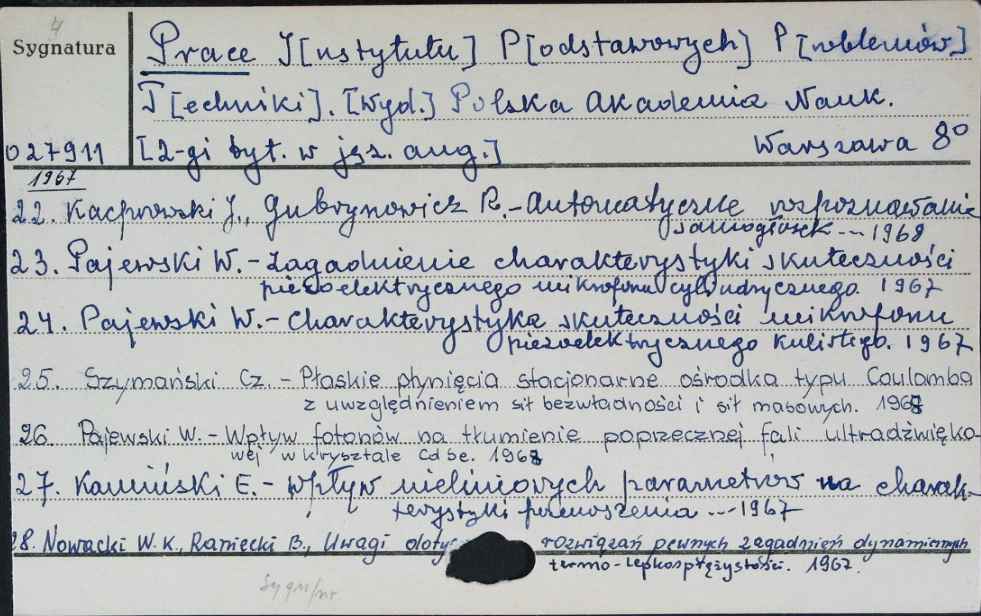 4
Sygnatura
Prace I[nstytutu] P[odstawowych] P[roblemów]
T[echniki]. [Wyd.] Polska Akademia Nauk.
027911 [2-gi tyt. w jęz. ang.] Warszawa 8°
1967
22. Kacprowski J., Gubrynowicz R. - Automatyczne rozpoznawanie
samogłosek --- 1968
23. Pajewski W. - Zagadnienie charakterystyki skuteczności
piezoelektrycznego mikrofonu cylindrycznego. 1967
24. Pajewski W. - Charakterystyka skuteczności mikrofonu
piezoelektrycznego kulistego. 1967
25. Szymański Cz. - Płaskie płynięcia stacjonarne ośrodka typu Coulomba
z uwzględnieniem sił bezwładności i sił masowych. 1968
26. Pajewski W. - Wpływ fotonów na tłumienie poprzecznej fali ultradźwięko-
wej w krysztale CdSe. 1968
27. Kamiński E. - Wpływ nieliniowych parametrów na charak-
terystyki przenoszenia --- 1967
28. Nowacki W. K., Raniecki B., Uwagi dotyc rozwiązań pewnych zagadnień dynamicznych
termo-lepkosprężystości. 1967.